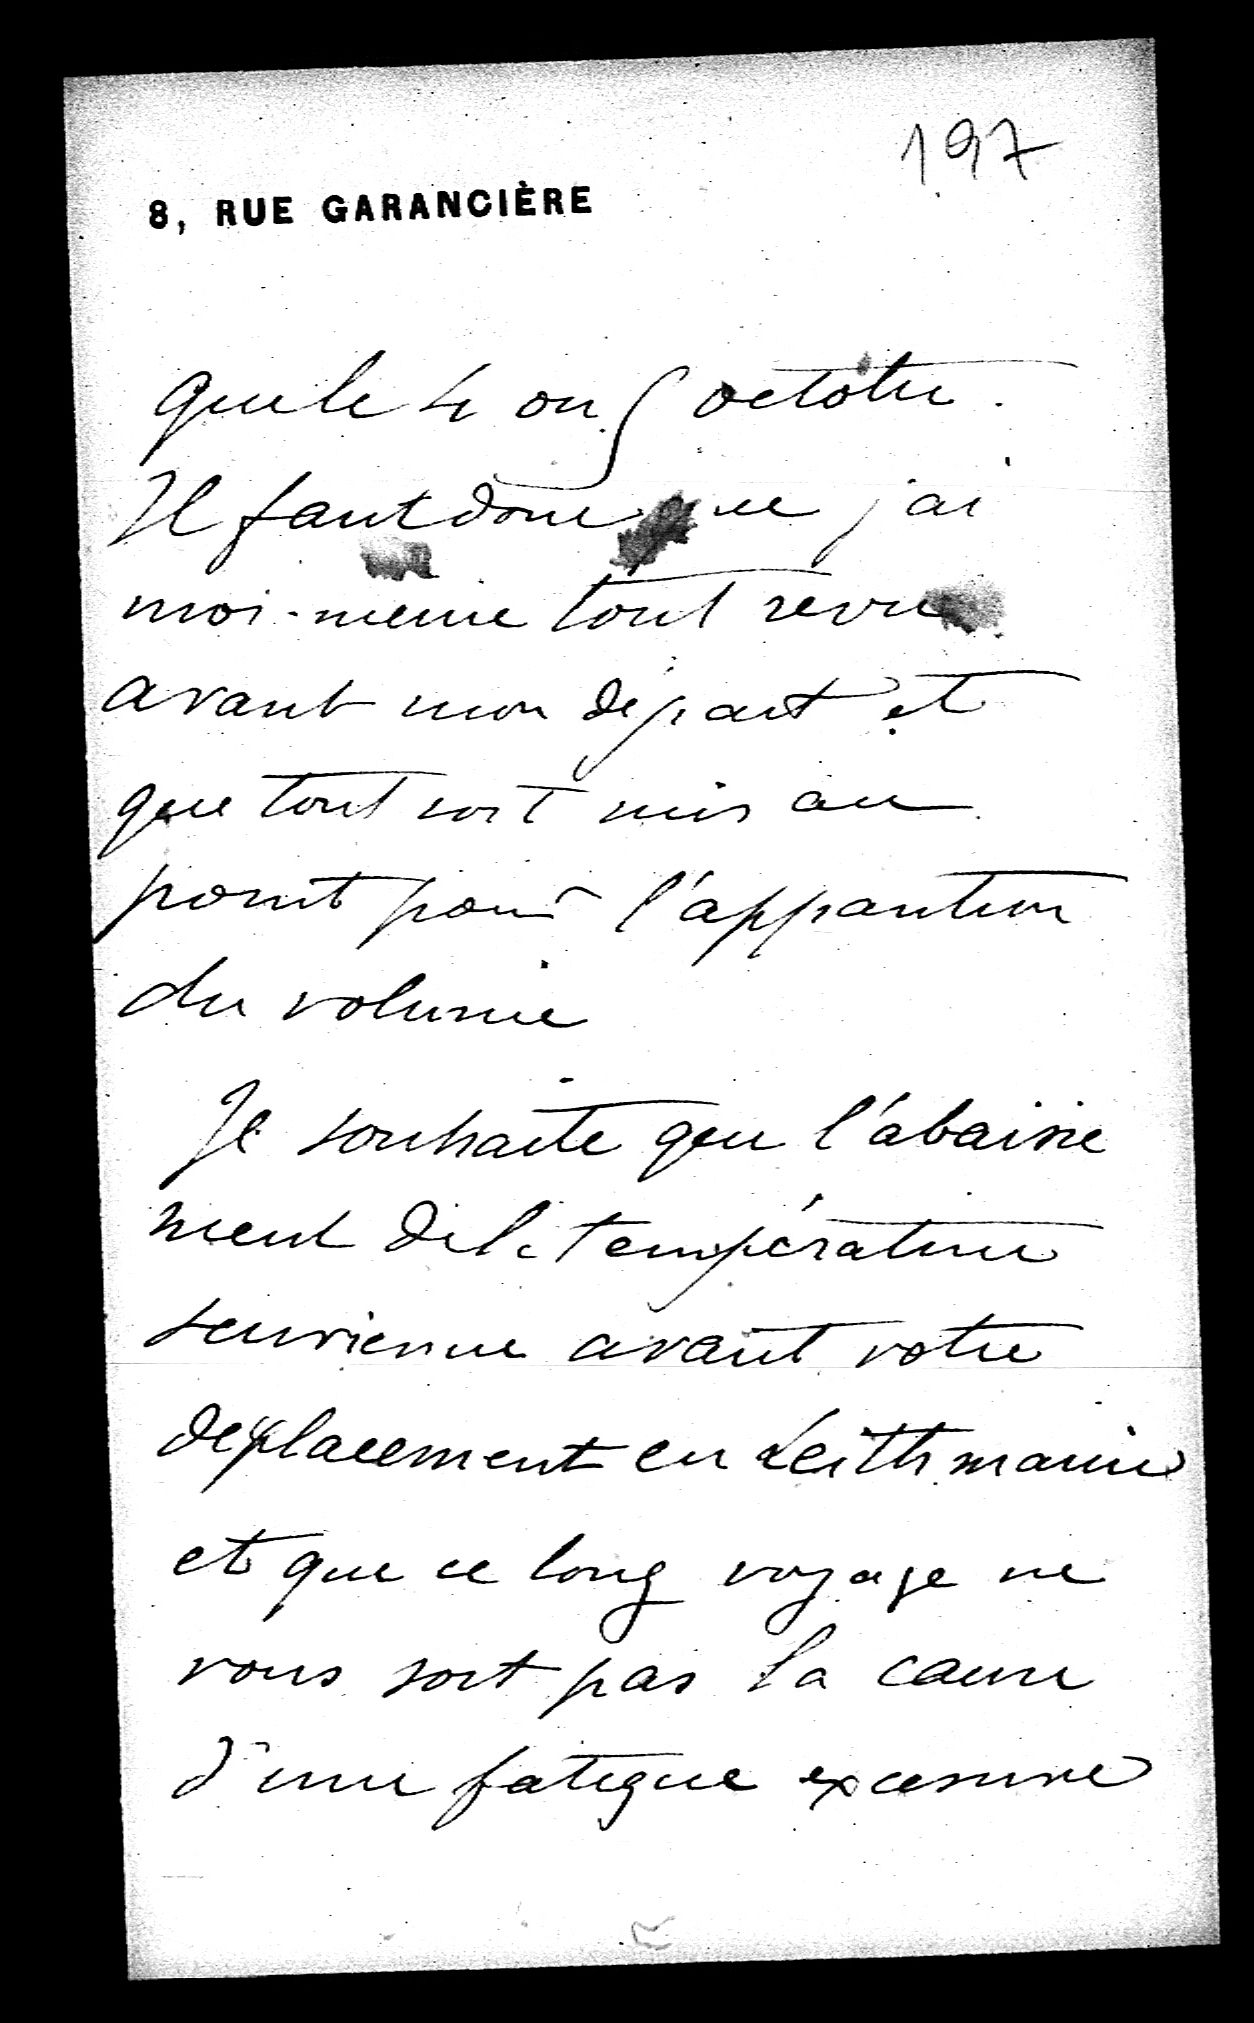 197
8, RUE GARANCIÈRE
que le 4 ou 5 octobre.
Il faut donc que j'ai
moi-meme tout revu
avant mon départ et
que tout soit mis au
point pour l'apparition
du volume
Je souhaite que l'abaisse
ment de la température
survienne avant votre
deplacement en
et que ce long voyage ne
vous soit pas la cause
d'une fatigue excessive